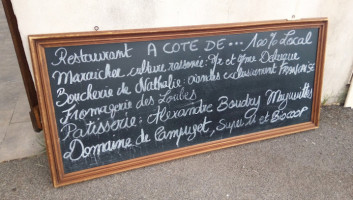 Restaurant A COTÉ DE... 100% Local
Maraicher culture raisonnée: Mr et Mme Deluque
Boucherie de Nathalie: viandes exclusivement FRANCAISE
Fromagerie des Loubes
Patisserie: Alexandre Boudry Mazauilles
Domaine de Campuget, Super U et Biocoop